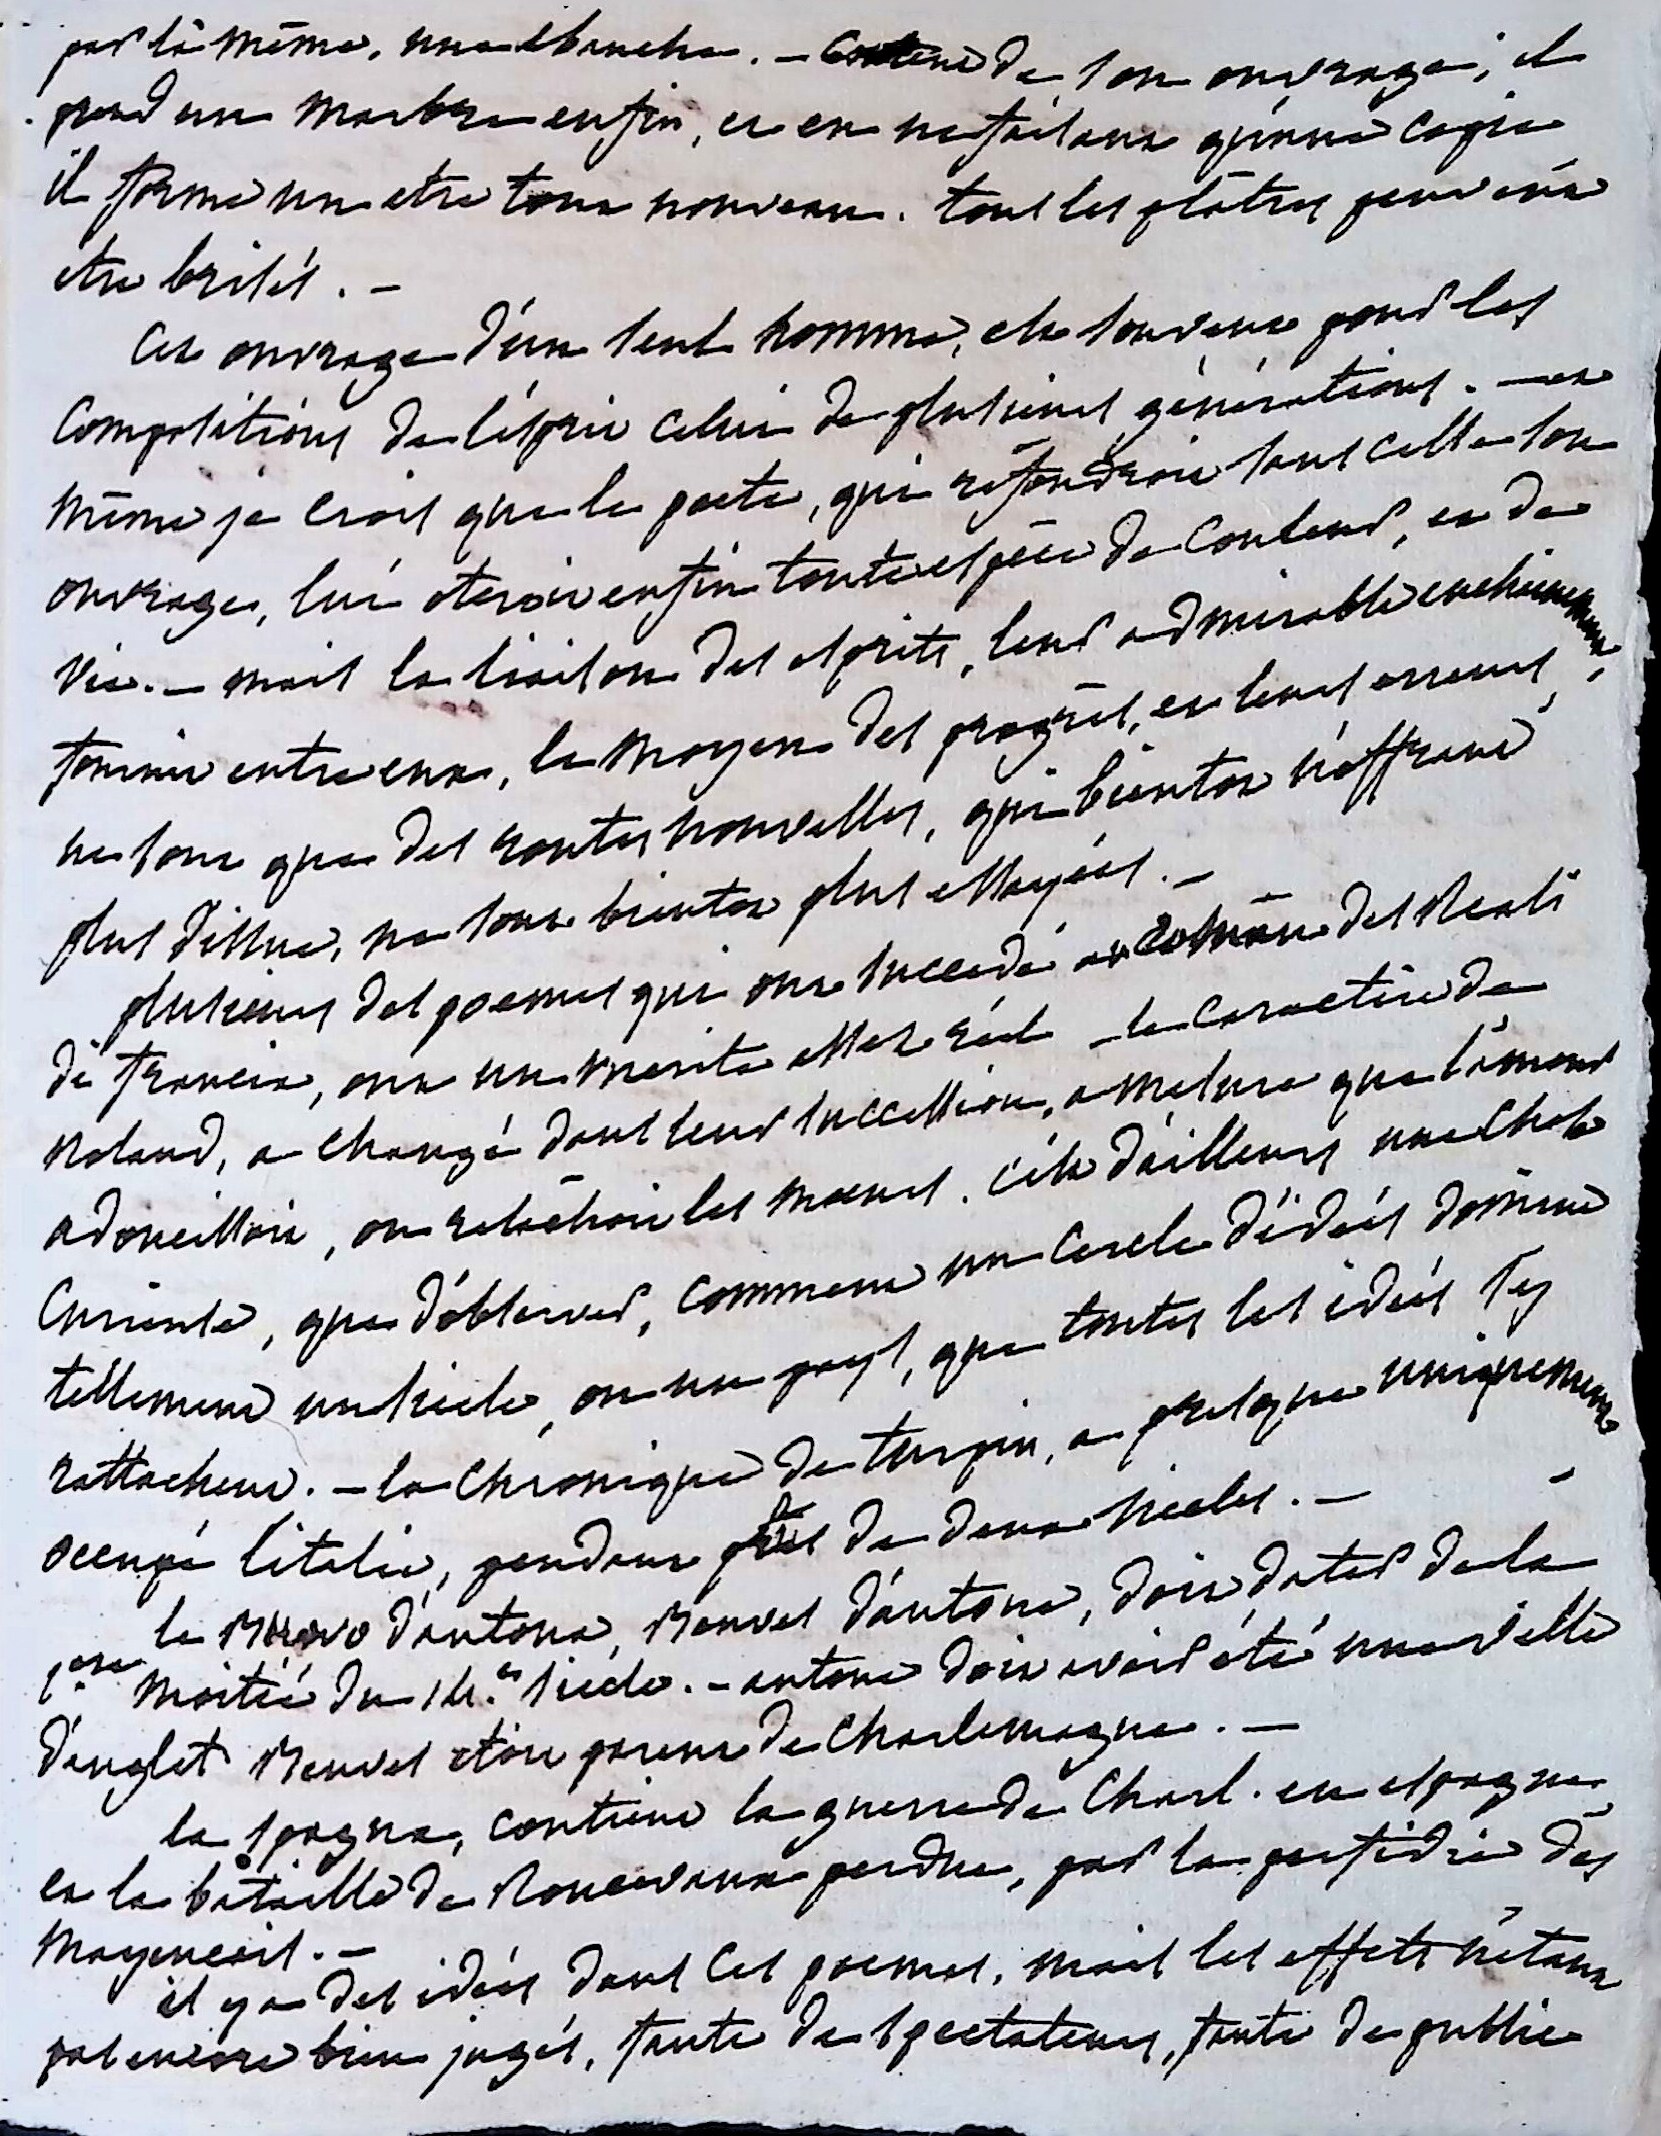 par là même, une ébauche. — Content de son ouvrage, il
prend un marbre enfin, et en ne faisant qu'une copie
il forme un etre tout nouveau. tous les plâtres peuvent
etre brisés. —
Cet ouvrage d'un seul homme, est souvent pour les
compositions de l'esprit celui de plusieurs générations. — et
même je crois que le poete, qui refondroit sans cesse son
ouvrage, lui oteroit enfin toute espèce de couleur, et de
vie. — mais la liaison des esprits, leur admirable enchainement,
fournit entre eux, le moyen des progrès, et leurs erreurs,
ne sont que des routes nouvelles, qui bientot n'offrant
plus d'issue, ne sont bientot plus essayées. —
plusieurs des poemes qui ont succedé au roman des Reali
di francia, ont un merite assez réel — le caractère de
Roland, a changé dans leur succession, a mesure que l'amour
adoucissoit, ou relâchoit les mœurs. c'est d'ailleurs une chose
curieuse, que d'observer, comment un cercle d'idées domine
tellement un siecle, ou un pays, que toutes les idées s'y
rattachent. — la chronique de turpin, a presque uniquement
occupé l'italie, pendant près de deux siecles. —
le Buovo d'antona, Beuves d'antone, doit dater de la
1.ere moitié du 14.e siècle. — antone doit avoir été une ville
d'anglet. Beuves etoit parent de Charlemagne. —
la spagna, contient la guerre de Charl. en espagne
et la bataille de Roncevaux perdue, par la perfidie des
Mayençais. —
il y a des idées dans ces poemes, mais les effets n'étant
pas encore bien jugés, faute de spectateurs, faute de public